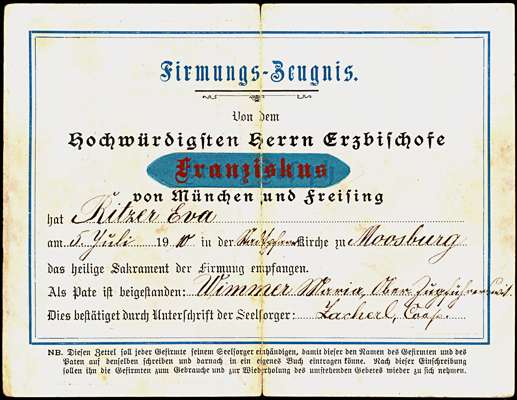 Firmungs-Zeugnis.
Von dem
Hochwürdigsten Herrn Erzbischofe
Franziskus
von München und Freising
hat Ritzer Eva
am 5. Juli 1910 in der Stadtpfarrkirche zu Moosburg
das heilige Sakrament der Firmung empfangen.
Als Pate ist beigestanden: Wimmer Maria, Ober
Dies bestätiget durch Unterschrift der Seelsorger: Lacherl, Coop.
NB. Diesen Zettel soll jeder Gefirmte seinem Seelsorger einhändigen, damit dieser den Namen des Gefirmten und des
Paten auf denselben schreiben und darnach in ein eigenes Buch eintragen könne. Nach dieser Einschreibung
sollen ihn die Gefirmten zum Gebrauche und zur Wiederholung des umstehenden Gebetes wieder zu sich nehmen.